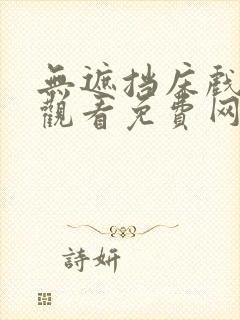 無遮挡床戲
觀看免費网
詩妍